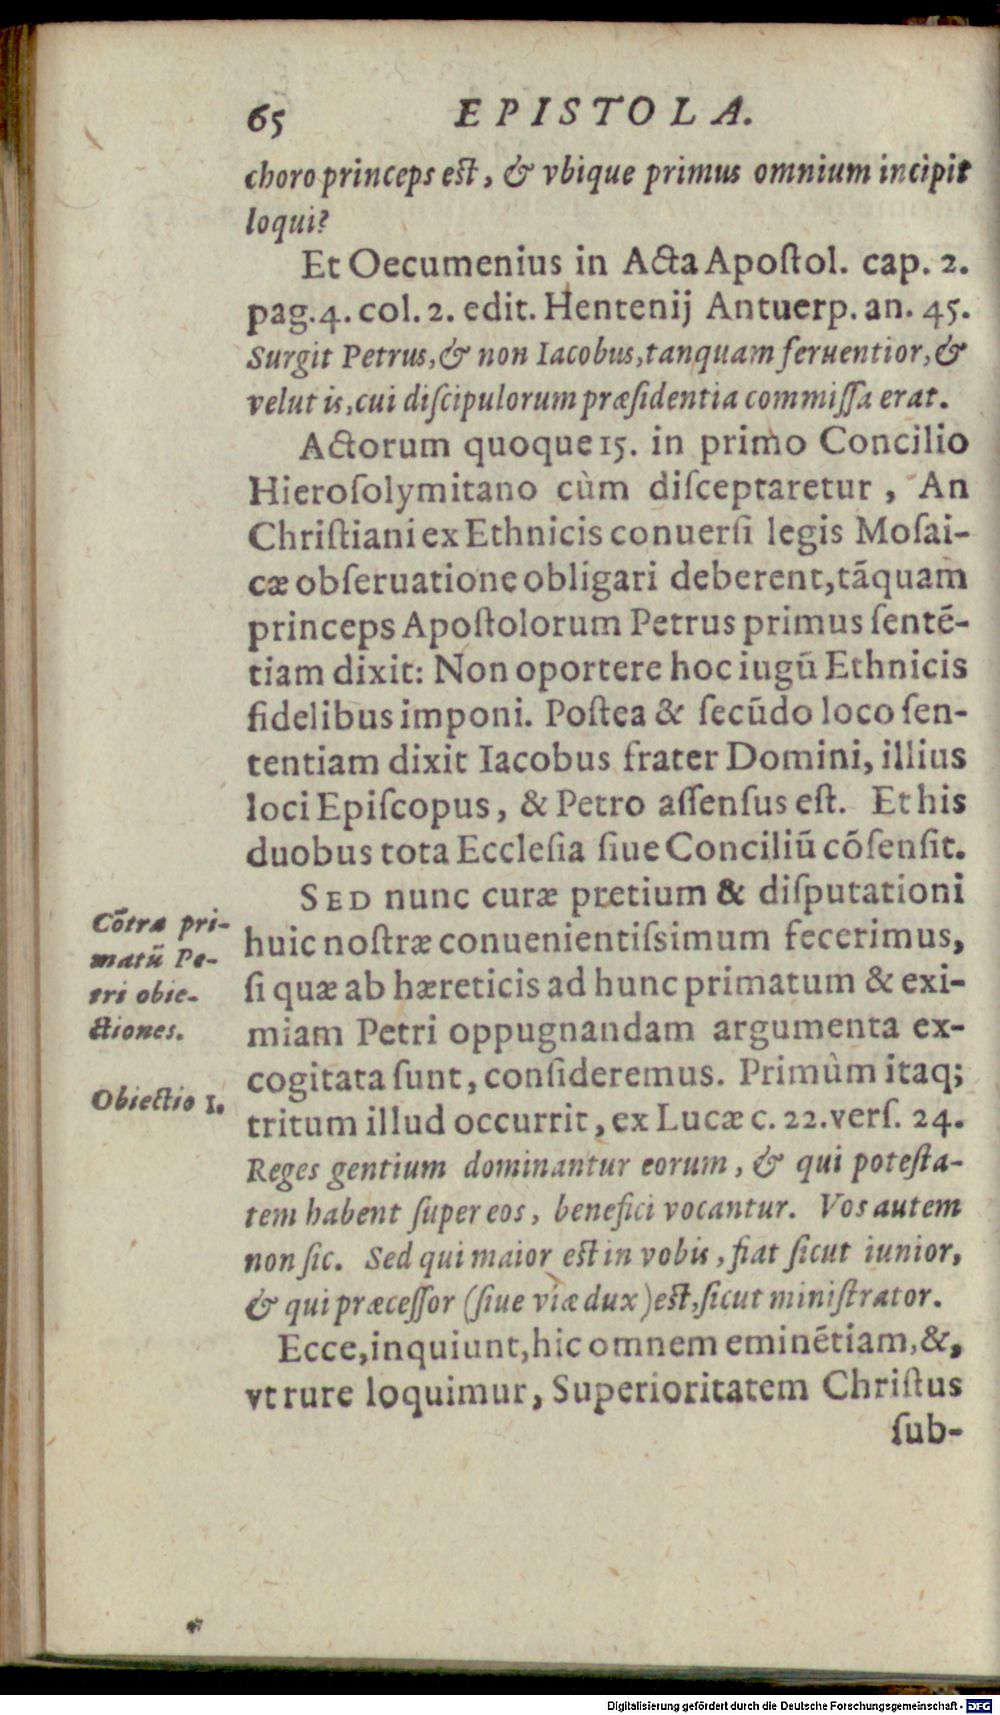 65 EPISTOLA.
choro princeps est, & vbique primus omnium incipit
loqui?
Et Oecumenius in Acta Apoſtol. cap. 2.
pag. 4. col. 2. edit. Hentenij Antuerp. an. 45.
Surgit Petrus, & non Iacobus, tanquam feruentior, &
velut is, cui diſcipulorum præſidentia commiſſa erat.
Actorum quoque 15. in primo Concilio
Hieroſolymitano cùm diſceptaretur, An
Chriſtiani ex Ethnicis conuerſi legis Moſai-
cæ obſeruatione obligari deberent, tãquam
princeps Apoſtolorum Petrus primus ſentẽ-
tiam dixit: Non oportere hoc iugũ Ethnicis
fidelibus imponi. Poſtea & ſecũdo loco ſen-
tentiam dixit Iacobus frater Domini, illius
loci Epiſcopus, & Petro aſſenſus eſt. Et his
duobus tota Eccleſia ſiue Conciliũ cõſenſit.
SED nunc curæ pretium & diſputationi
huic noſtræ conuenientiſsimum fecerimus,
ſi quæ ab hæreticis ad hunc primatum & exi-
miam Petri oppugnandam argumenta ex-
cogitata ſunt, conſideremus. Primùm itaq;
tritum illud occurrit, ex Lucæ c. 22. verſ. 24.
Reges gentium dominantur eorum, & qui poteſta-
tem habent ſuper eos, benefici vocantur. Vos autem
non ſic. Sed qui maior est in vobis, fiat ſicut iunior,
& qui præceſſor (ſiue viæ dux) est, ſicut miniſtrator.
Ecce, inquiunt, hic omnem eminẽtiam, &,
vt rure loquimur, Superioritatem Chriſtus
ſub-
Cõtra pri-
matũ Pe-
tri obie-
ctiones.
Obiectio 1.
Digitalisierung gefördert durch die Deutsche Forschungsgemeinschaft - DFG